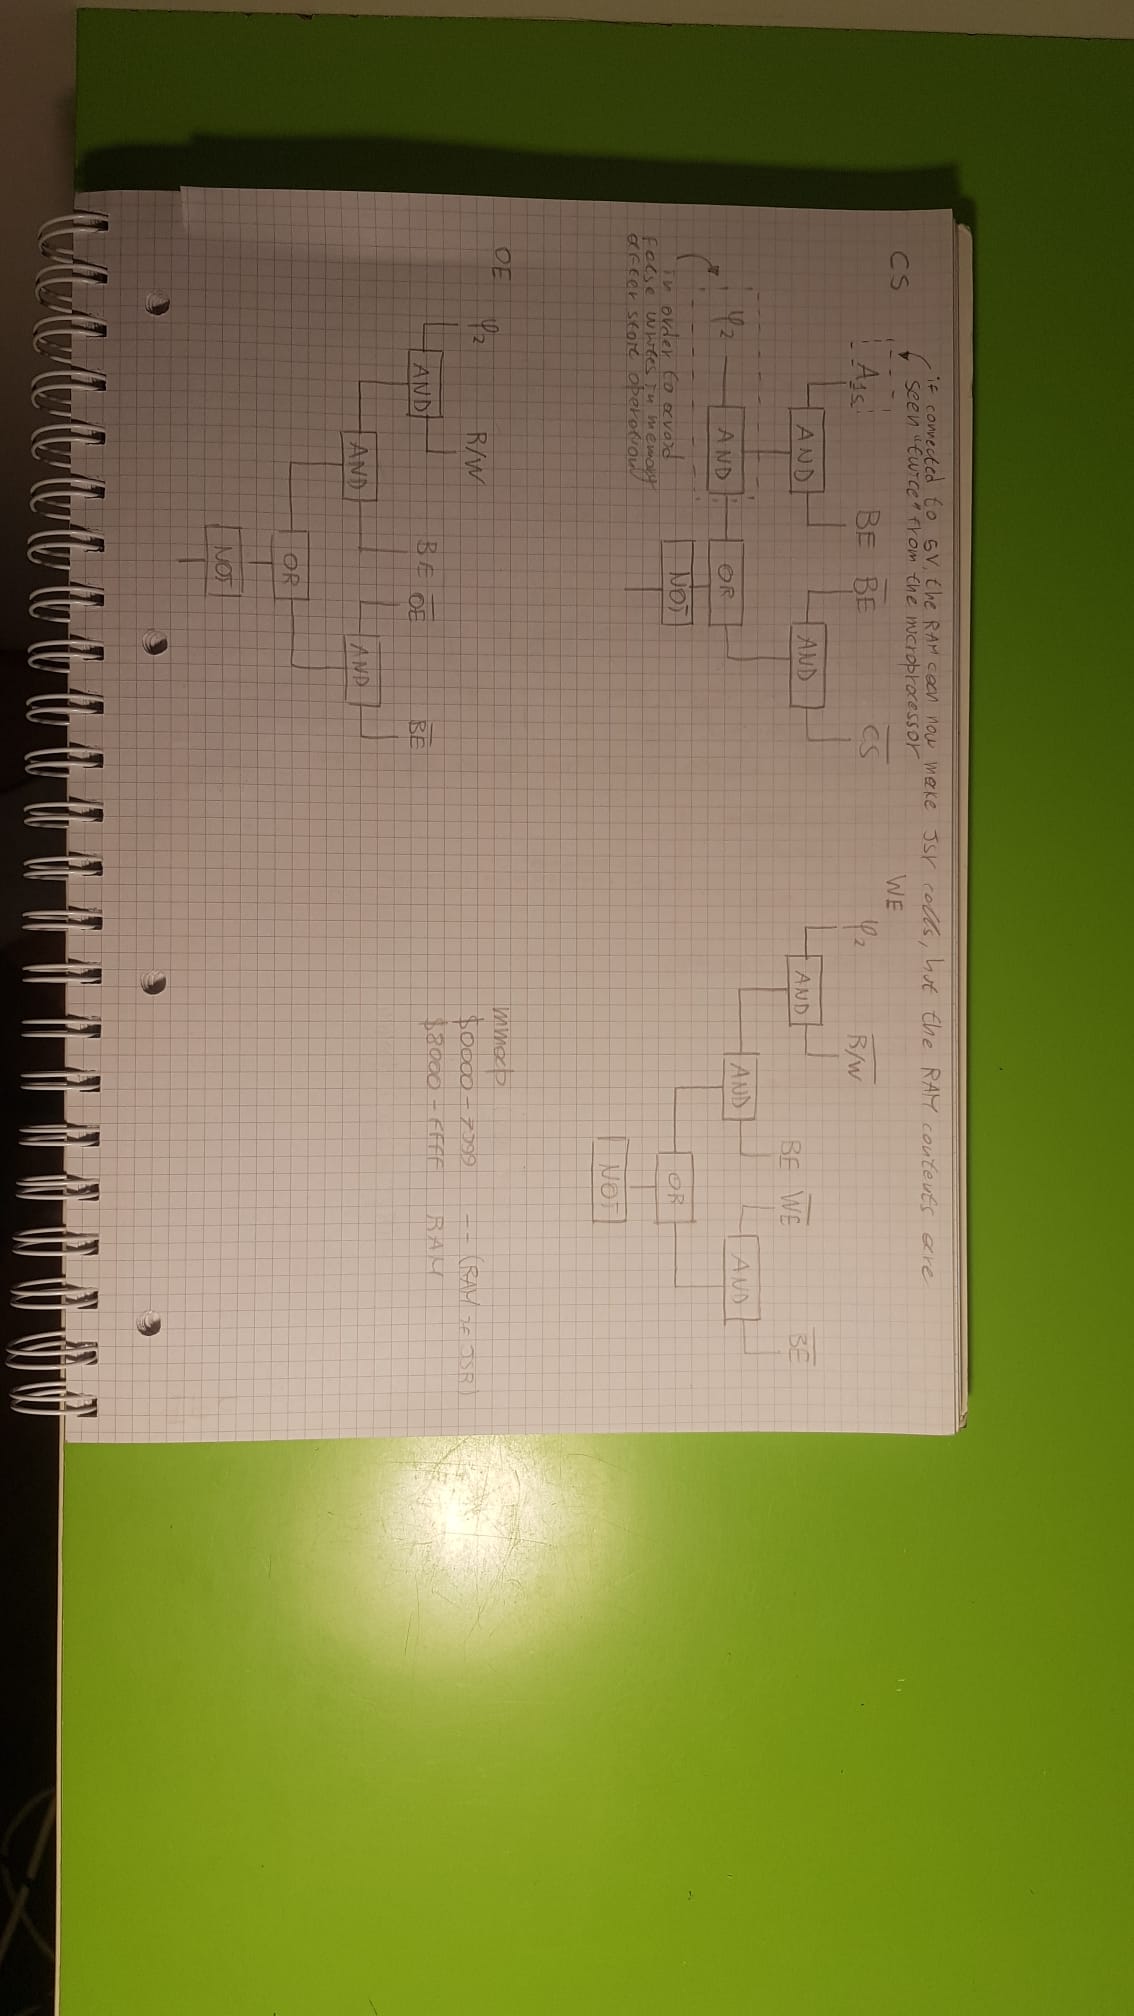 if connected to 5V, the RAM can now make JSR calls, but the RAM contents are
seen "twice" from the microprocessor
CS
A15
BE
BE
CS
AND
AND
φ2
AND
OR
NOT
in order to avoid
false writes in memory
after store operation
WE
φ2
R/W
AND
BE
WE
BE
AND
AND
OR
NOT
OE
φ2
R/W
AND
BE
OE
BE
AND
AND
OR
NOT
mmap
$0000 - 7999 -- (RAM if JSR)
$8000 - FFFF RAM